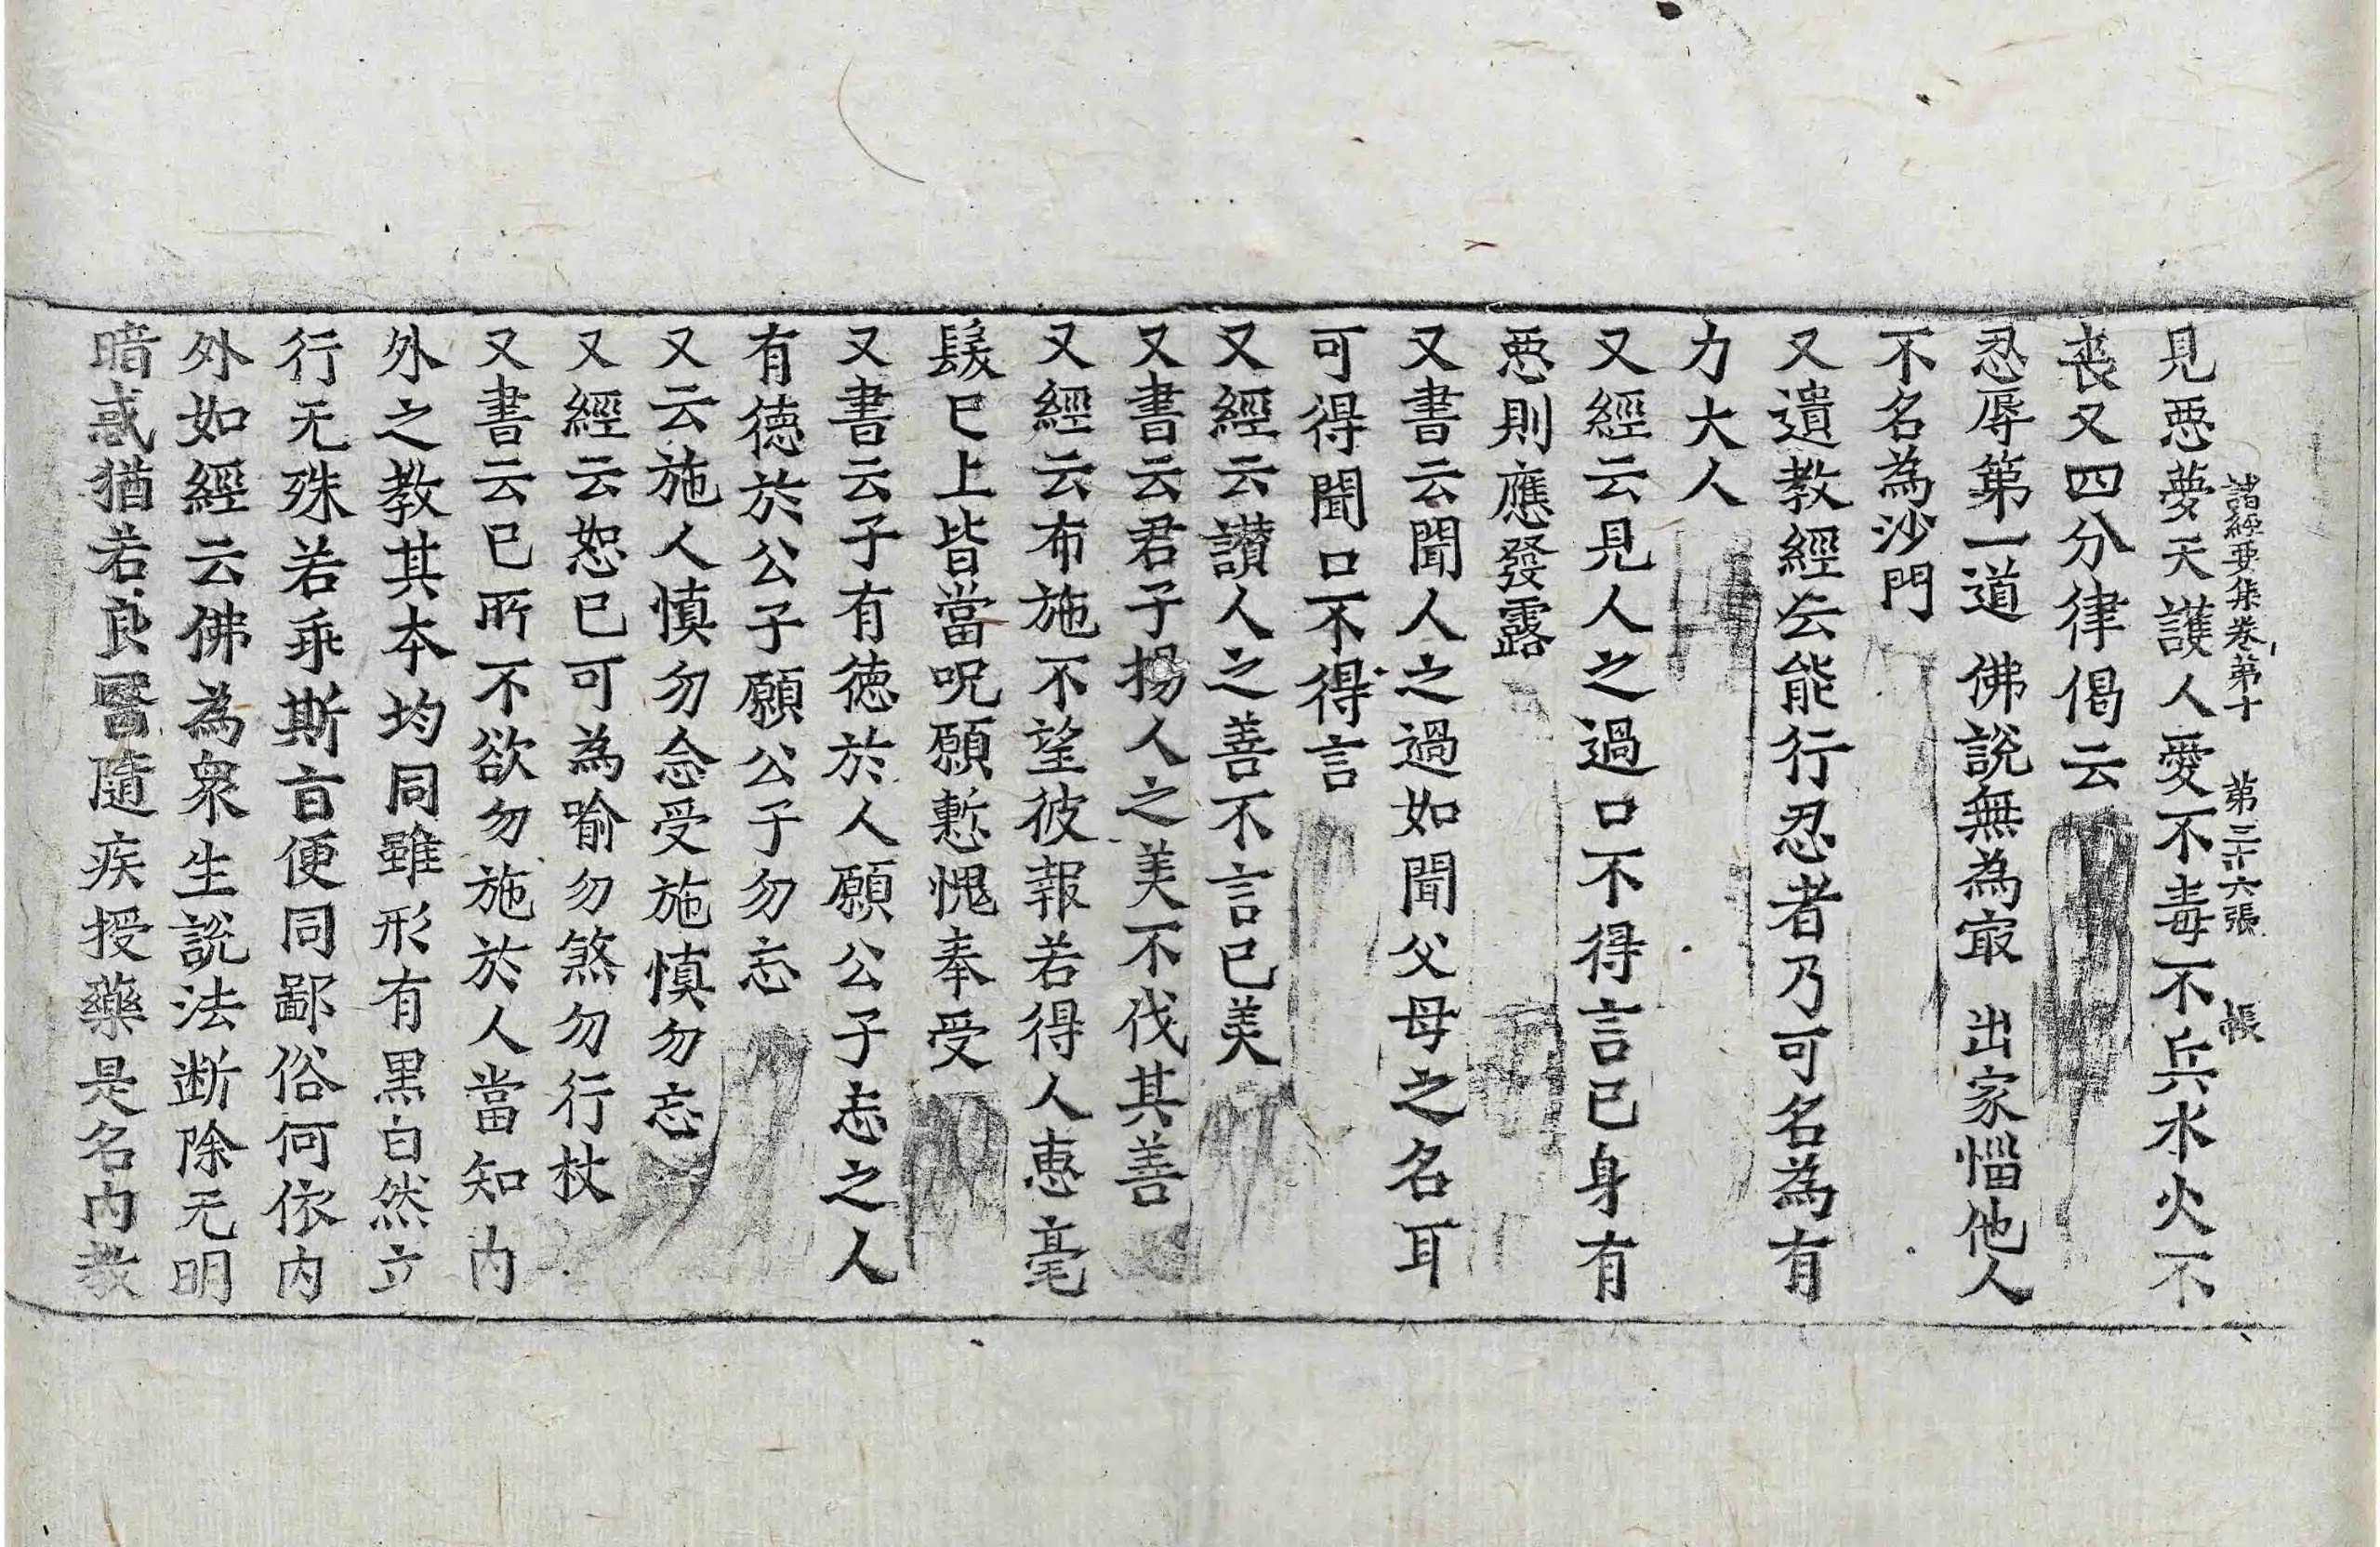 諸經要集卷第十　第三十六張　帳
見惡夢天護人愛不毒不兵水火不
丧又四分律偈云
忍辱第一道　佛說無為冣　出家惱他人
不名為沙門
又遺教經云能行忍者乃可名為有
力大人
又經云見人之過口不得言己身有
惡則應發露
又書云聞人之過如聞父母之名耳
可得聞口不得言
又經云讃人之善不言己美
又書云君子揚人之美不伐其善
又經云布施不望彼報若得人惠毫
髮已上皆當呪願慙愧奉受
又書云子有徳於人願公子忘之人
有德於公子願公子勿忘
又云施人慎勿念受施慎勿忘
又經云恕己可為喻勿煞勿行杖
又書云己所不欲勿施於人當知内
外之教其本均同雖形有黒白然立
行无殊若乖斯旨便同鄙俗何依内
外如經云佛為衆生說法断除无明
暗惑猶若良醫隨疾授藥是名内教